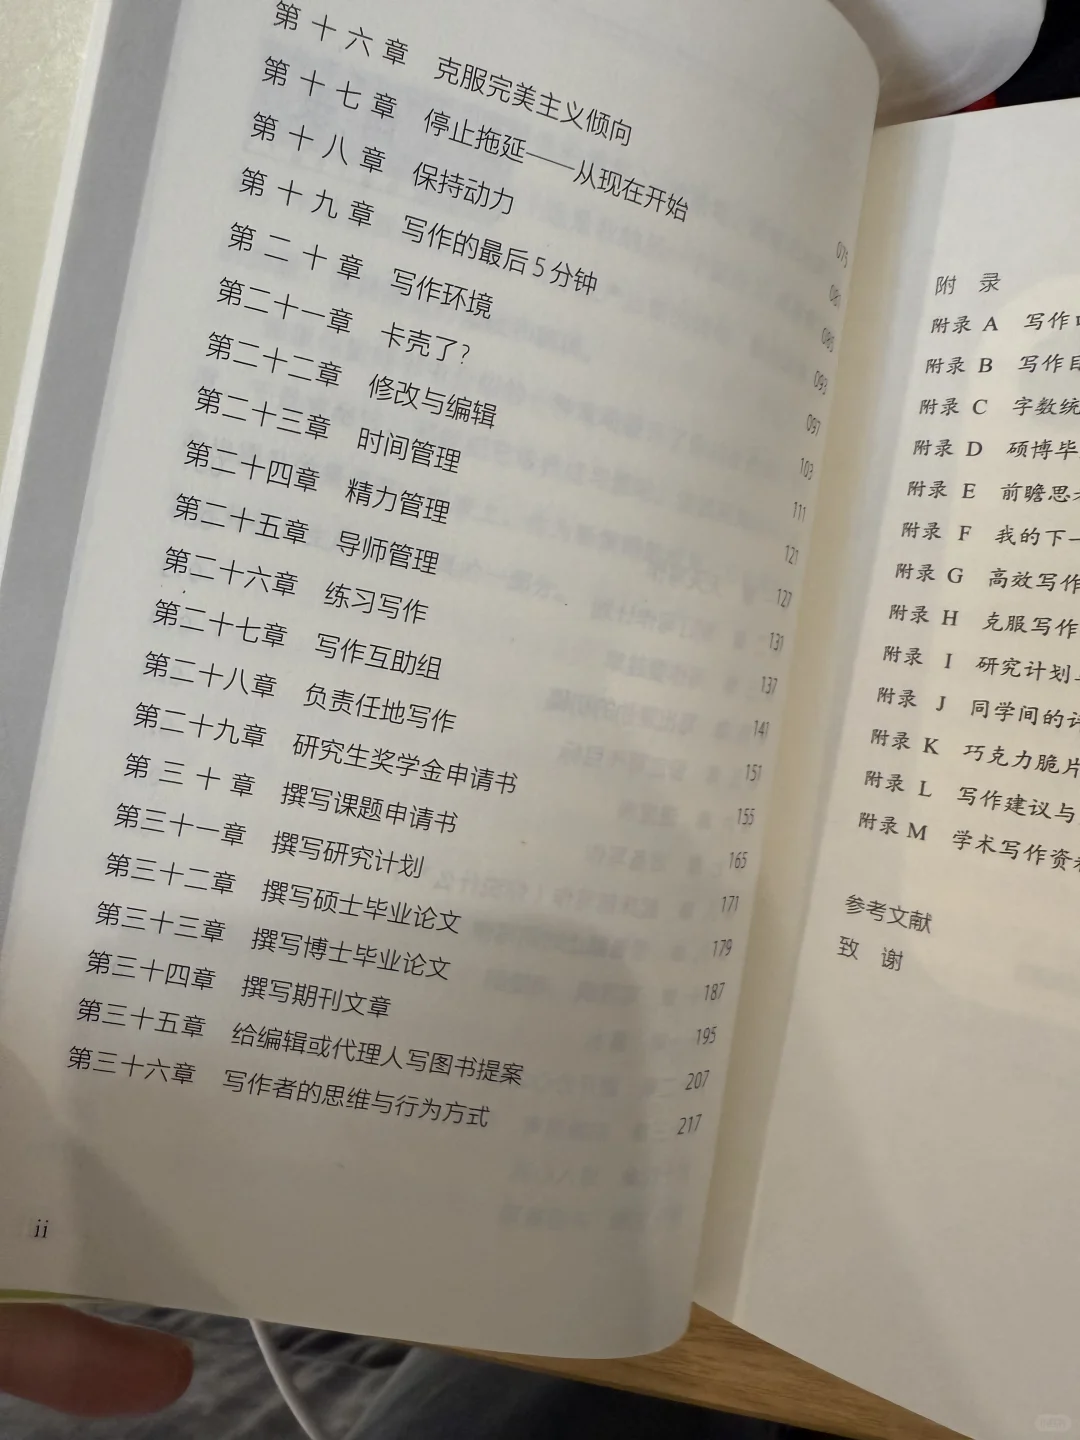 第十六章 克服完美主义倾向 075
第十七章 停止拖延——从现在开始 081
第十八章 保持动力 085
第十九章 写作的最后5分钟 093
第二十章 写作环境 097
第二十一章 卡壳了? 103
第二十二章 修改与编辑 111
第二十三章 时间管理 121
第二十四章 精力管理 127
第二十五章 导师管理 131
第二十六章 练习写作 137
第二十七章 写作互助组 141
第二十八章 负责任地写作 151
第二十九章 研究生奖学金申请书 155
第三十章 撰写课题申请书 165
第三十一章 撰写研究计划 171
第三十二章 撰写硕士毕业论文 179
第三十三章 撰写博士毕业论文 187
第三十四章 撰写期刊文章 195
第三十五章 给编辑或代理人写图书提案 207
第三十六章 写作者的思维与行为方式 217
ii
附 录
附录 A 写作
附录 B 写作目
附录 C 字数统
附录 D 硕博毕
附录 E 前瞻思
附录 F 我的下一
附录 G 高效写作
附录 H 克服写作
附录 I 研究计划
附录 J 同学间的
附录 K 巧克力脆片
附录 L 写作建议与
附录 M 学术写作资
参考文献
致 谢